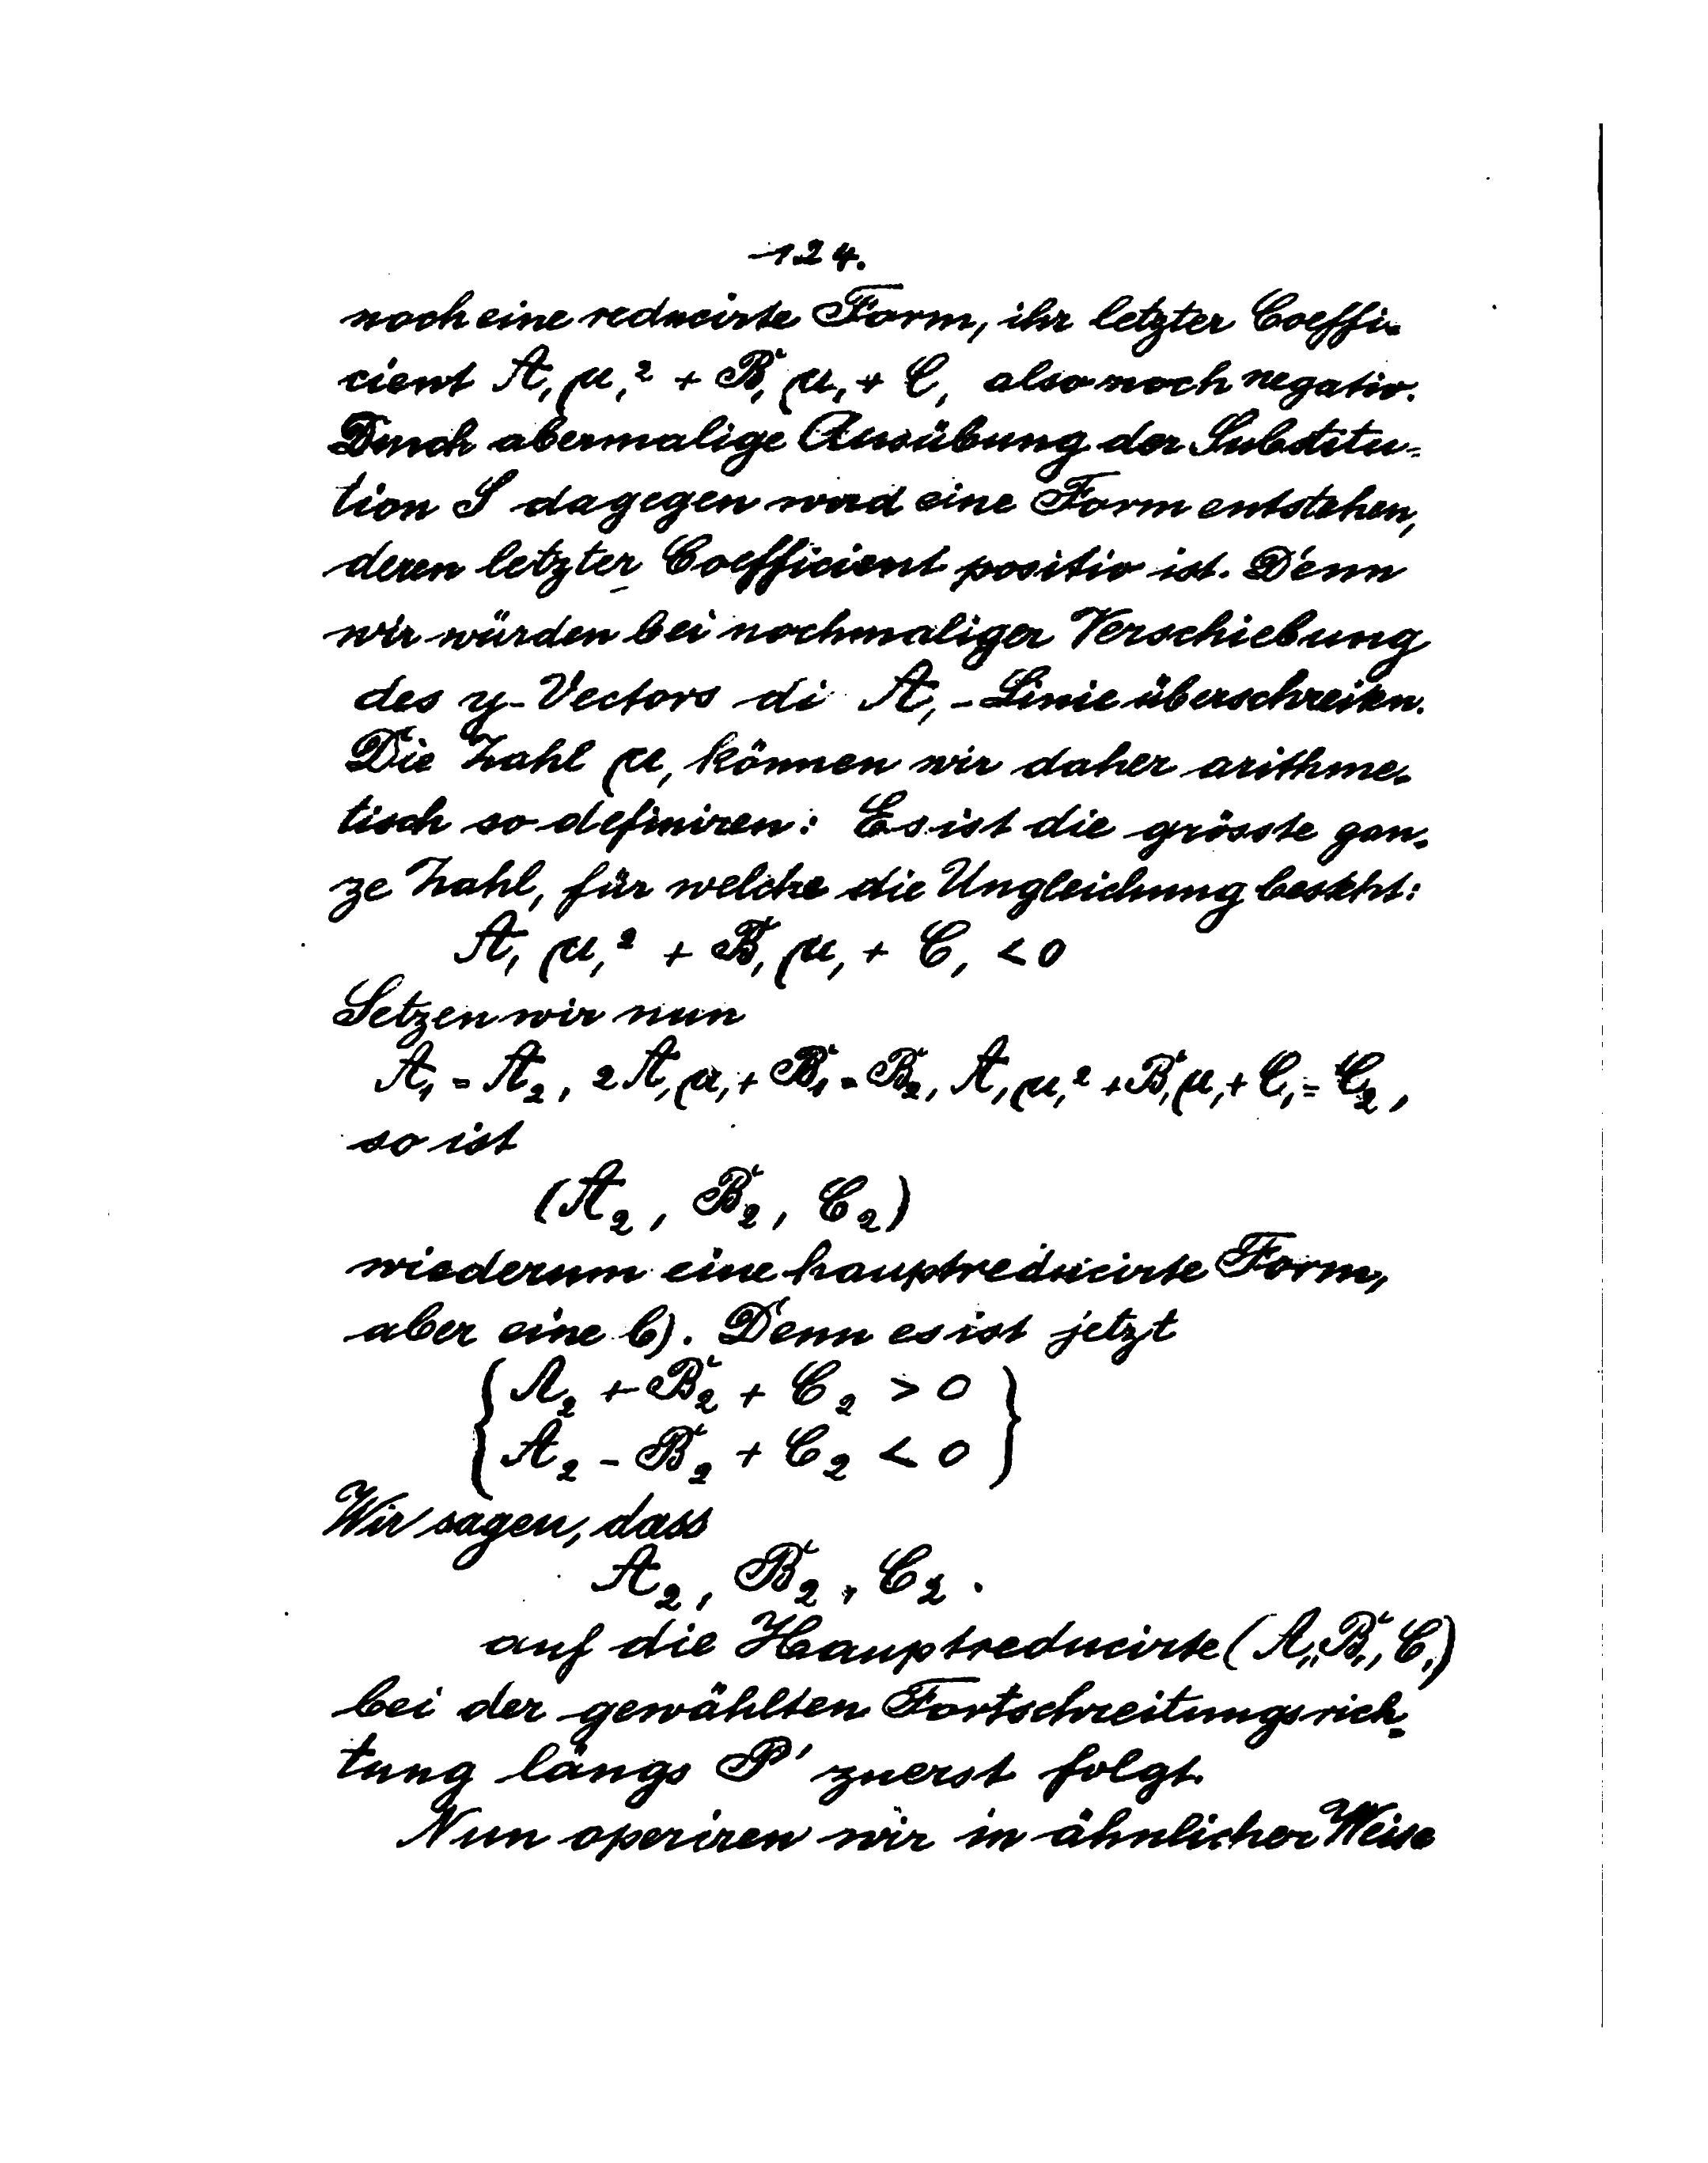 124.
noch eine reducirte Form, ihr letzter Coeffi-
cient A₁μ₁² + B₁μ₁ + C₁ also noch negativ.
Durch abermalige Ausübung der Substitu-
tion S dagegen wird eine Form entstehen,
deren letzter Coefficient positiv ist. Denn
wir würden bei nochmaliger Verschiebung
des y-Vectors di A₁-Linie überschreiten.
Die Zahl μ₁ können wir daher arithme-
tisch so definiren: Es ist die grösste gan-
ze Zahl, für welche die Ungleichung besteht:
A₁μ₁² + B₁μ₁ + C₁ < 0
Setzen wir nun
A₁ = A₂, 2A₁μ₁ + B₁ = B₂, A₁μ₁² + B₁μ₁ + C₁ = C₂,
so ist
(A₂, B₂, C₂)
wiederum eine hauptreducirte Form,
aber eine b). Denn es ist jetzt
{A₂ + B₂ + C₂ > 0}
{A₂ - B₂ + C₂ < 0}
Wir sagen, dass
A₂, B₂, C₂.
auf die Hauptreducirte (A₁, B₁, C₁)
bei der gewählten Fortschreitungsrich-
tung längs P' zuerst folgt.
Nun operiren wir in ähnlicher Weise